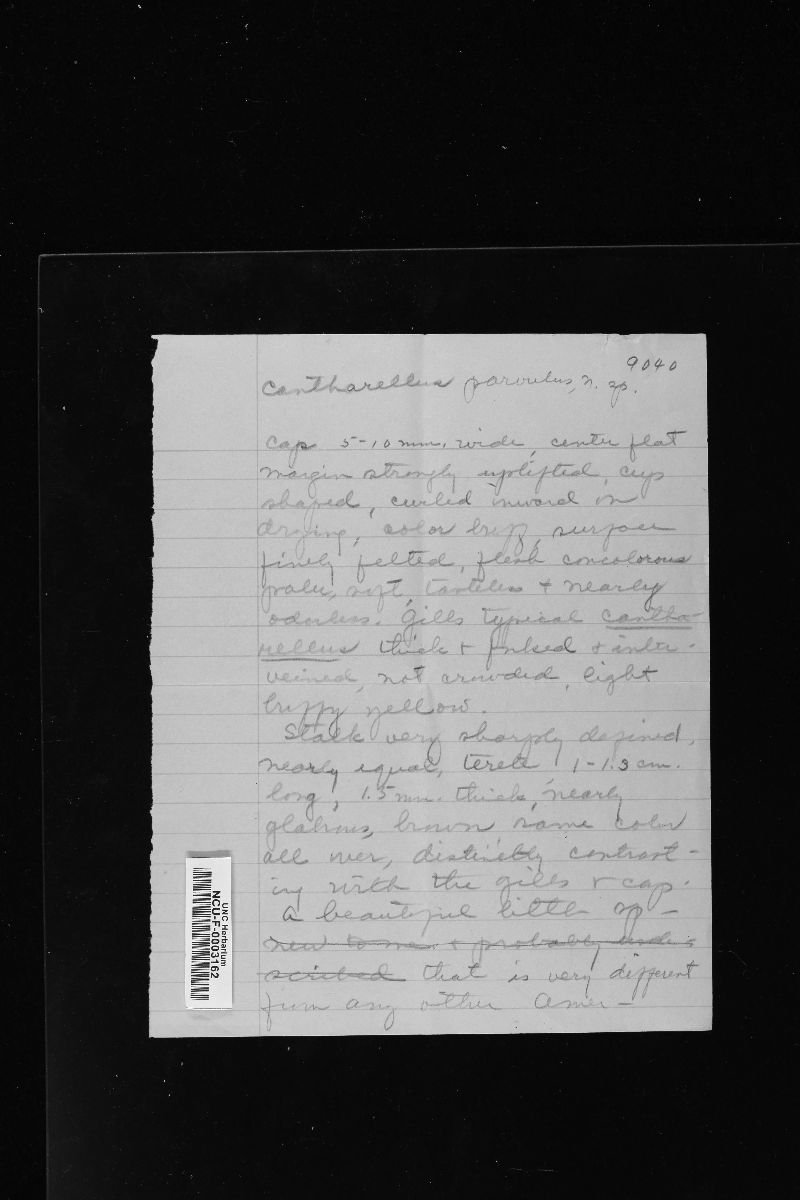 9040
Cantharellus parvulus, n. sp.
Cap 5-10 mm. wide, center flat
margin strongly uplifted, cup
shaped, curled inward in
drying, color buff, surface
finely felted, flesh concolorous
pale, soft, tasteless + nearly
odorless. Gills typical Cantha-
rellus thick + forked + inter-
veined, not crowded, light
buffy yellow.
Stalk very sharply defined,
nearly equal, terete, 1-1.3 cm.
long, 1.5 mm. thick, nearly
glabrous, brown same color
all over, distinctly contrast-
ing with the gills + cap.
A beautiful little sp -
new to me + probably unde-
scribed that is very different
from any other Amer-
UNC Herbarium
NCU-F-0003162